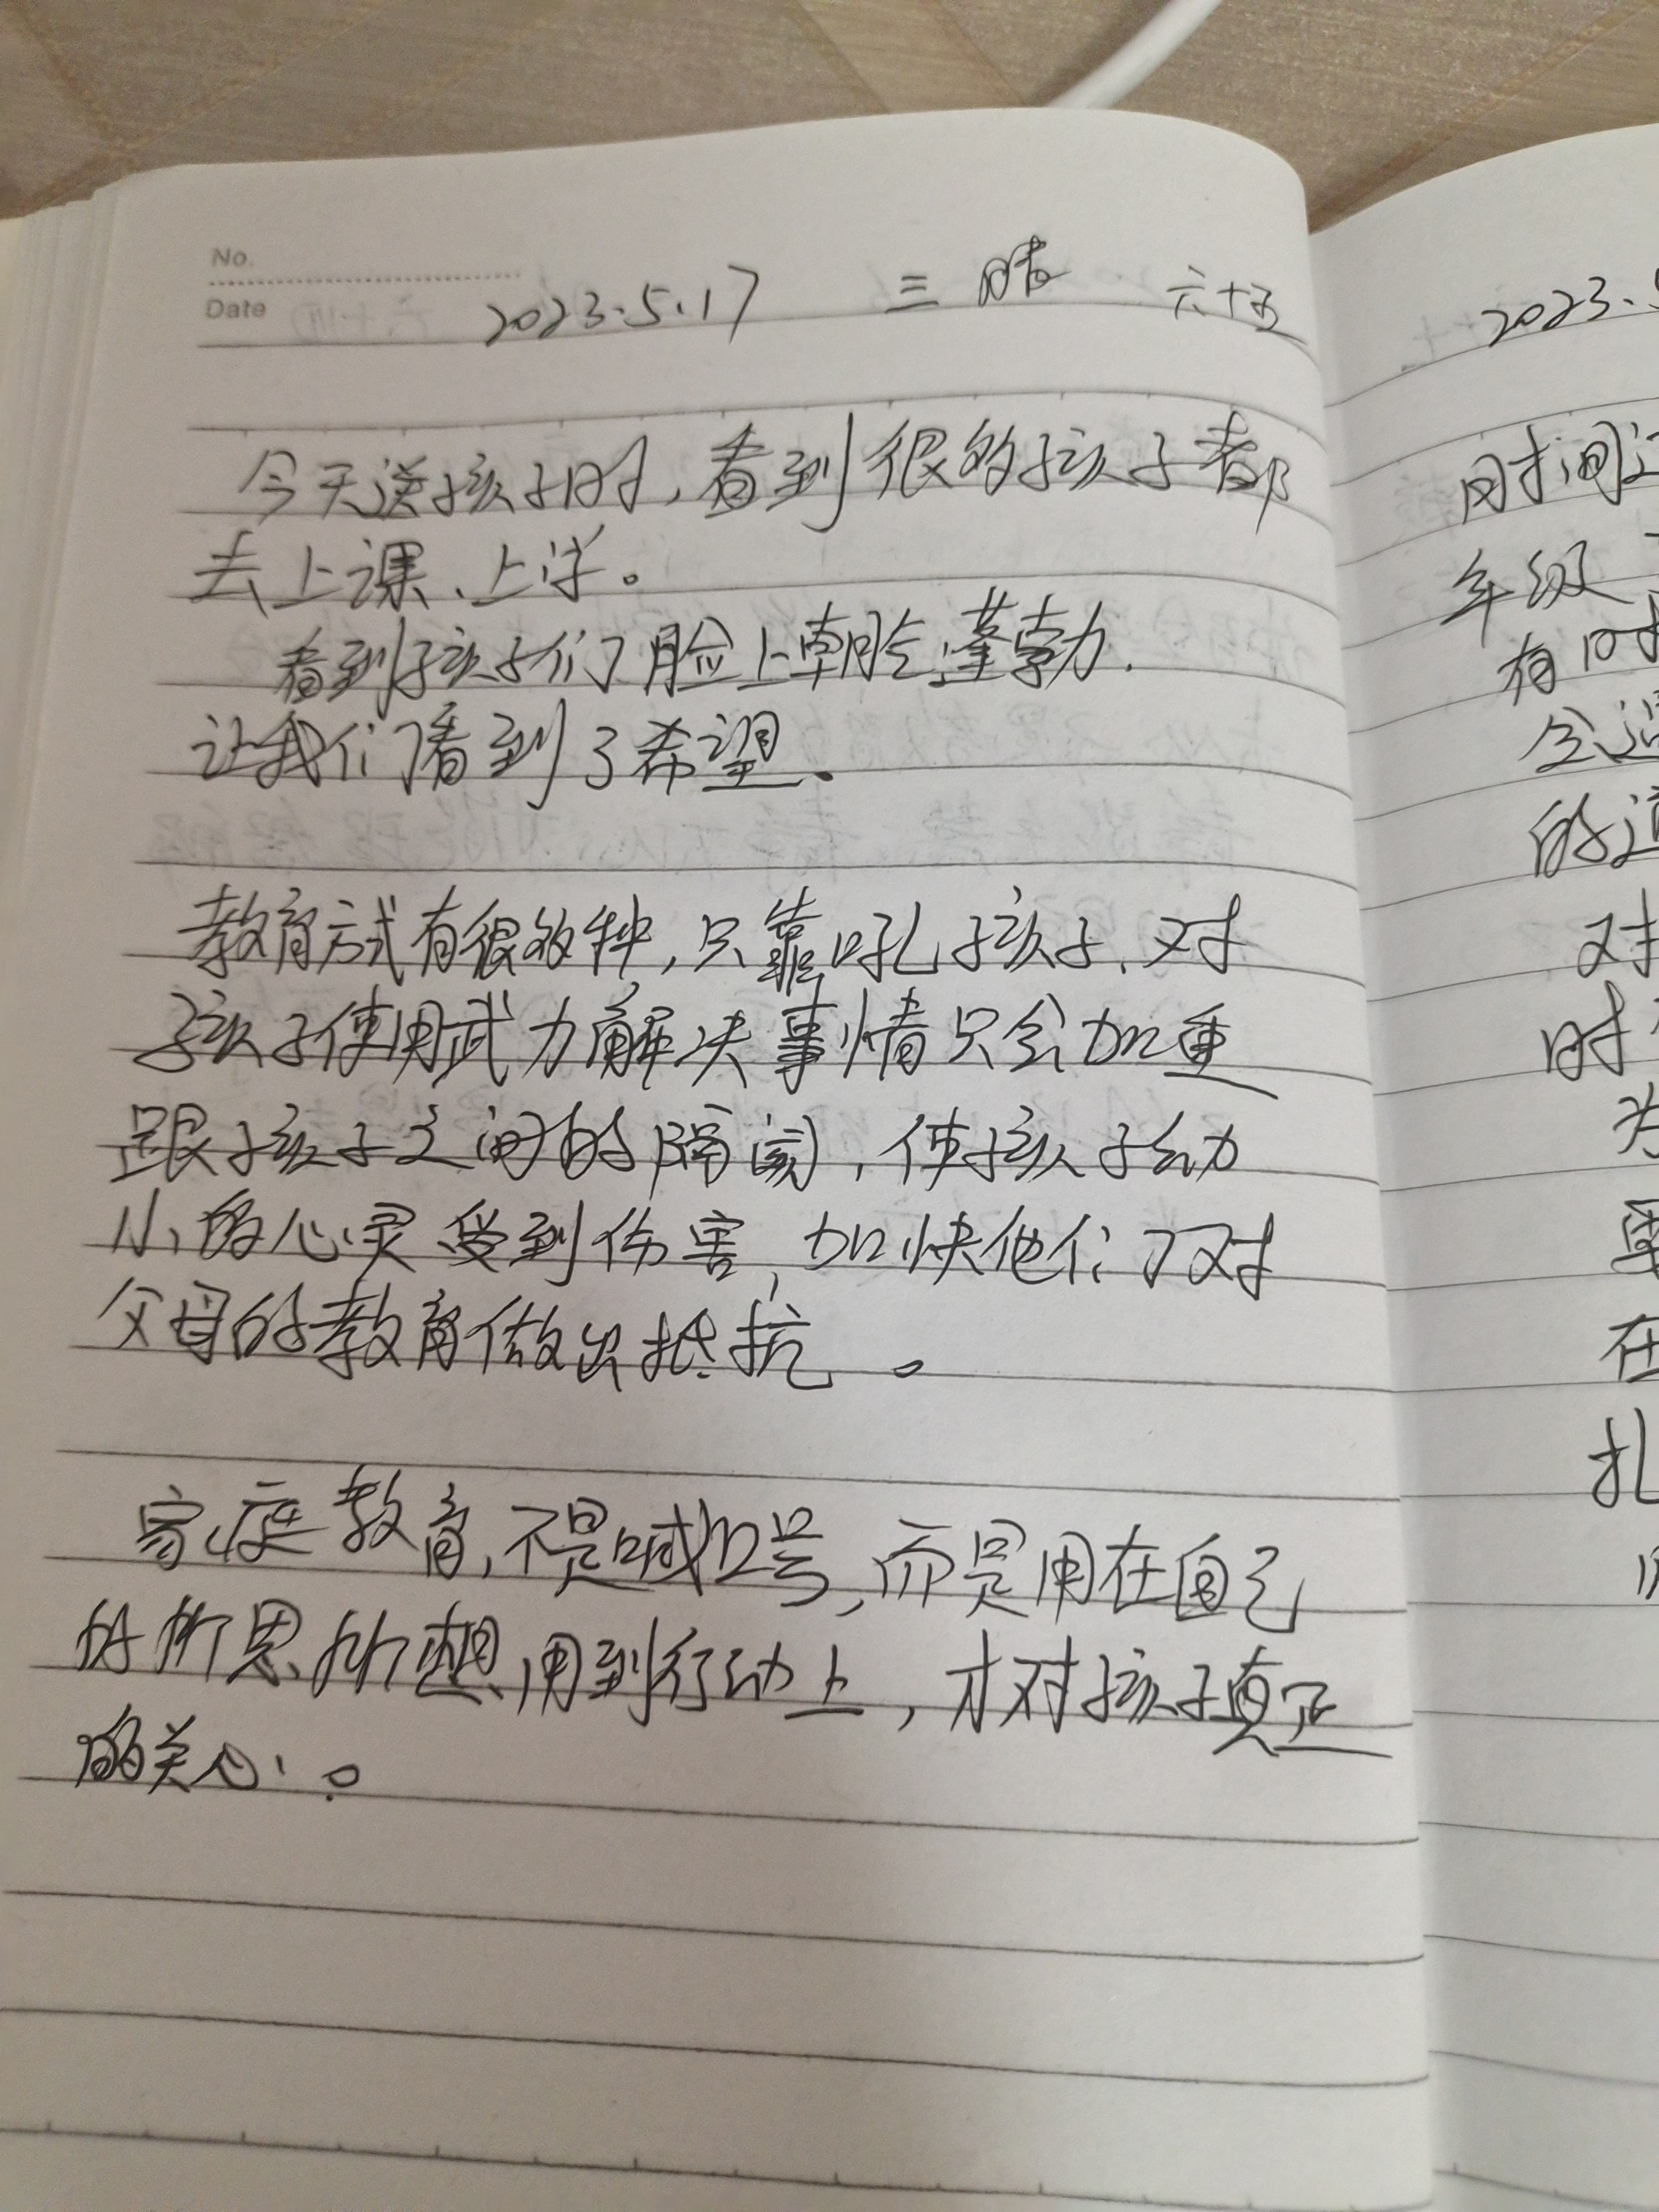 No.
Date 2023.5.17 三 晴 六十五
今天送孩子时,看到很多孩子都
去上课、上学。
看到孩子们脸上朝 蓬勃.
让我们看到了希望.
教育方式有很多种,只靠吼孩子、对
孩子使用武力解决事情只会加重
跟孩子之间的隔阂,使孩子幼
小的心灵受到伤害,加快他们对
父母的教育做出抵抗。
家庭教育,不是喊口号,而是用在自己
的所思、所想、用到行动上,才对孩子真正
的关心。
2023.5
时间
年级
有时
会
的
对
时
为
在
扎